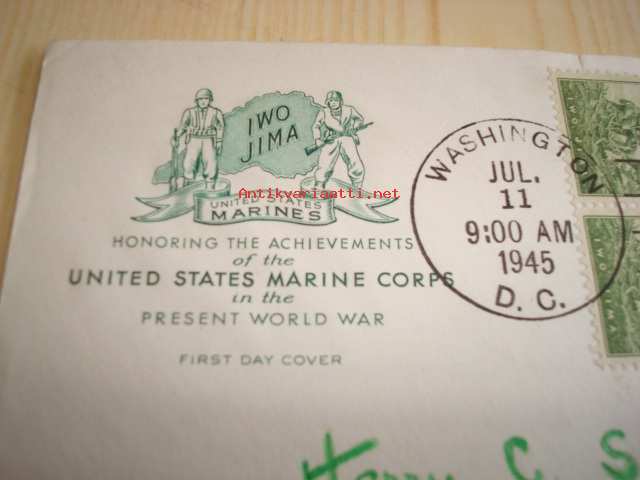 IWO
JIMA
UNITED STATES
MARINES
Antikvariaatti.net
HONORING THE ACHIEVEMENTS
of the
UNITED STATES MARINE CORPS
in the
PRESENT WORLD WAR
FIRST DAY COVER
WASHINGTON
JUL.
11
9:00 AM
1945
D. C.
Harry C. S